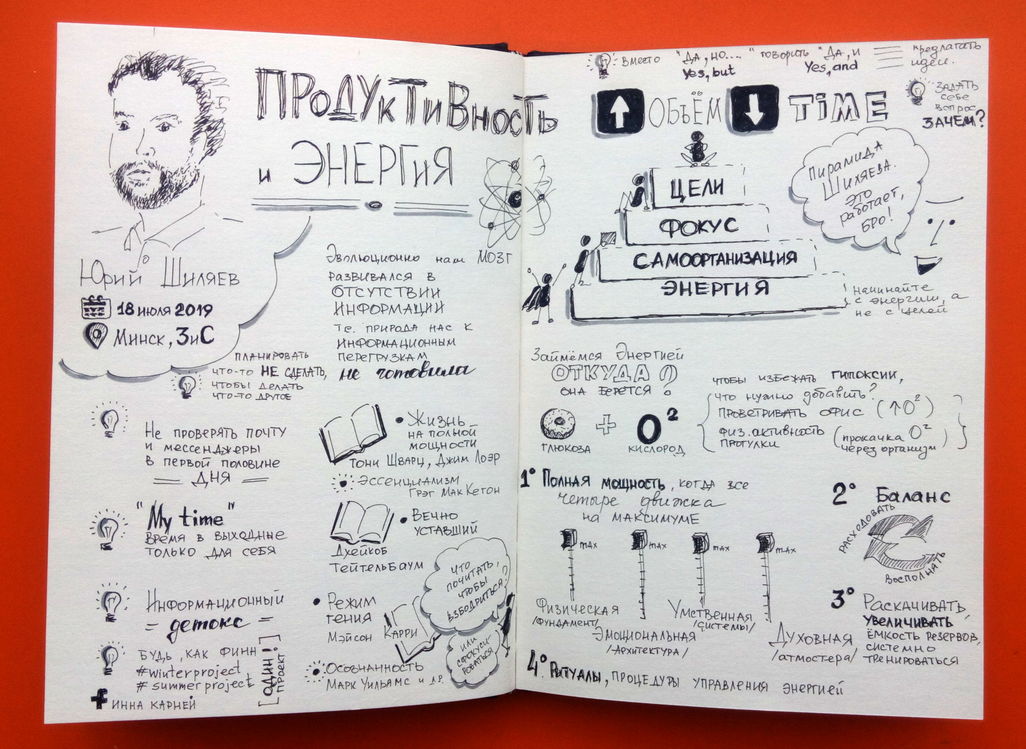 ПРОДУКТИВНОСТЬ
и ЭНЕРГИЯ
Юрий Шиляев
18 июля 2019
Минск, ЗиС
планировать
что-то НЕ СДЕЛАТЬ,
чтобы делать
что-то другое
Эволюционно наш МОЗГ
развивался в
ОТСУТСТВИИ
ИНФОРМАЦИИ
т.е. природа нас к
информационным
перегрузкам
не готовила
Не проверять почту
и мессенджеры
в первой половине
ДНЯ
"My time"
время в выходные
только для себя
Информационный
детокс
Будь, как финн
#winterproject
#summerproject
[один!]
проект
f Инна Карней
• Жизнь
на полной
мощности
Тони Шварц, Джим Лоэр
Эссенциализм
Грэг МакКеон
• Вечно
уставший
Джейкоб
Тейтельбаум
• Режим
гения
Мэйсон Карри
• Осознанность
Марк Уильямс и др.
что
почитать,
чтобы
взбодриться?
или
сфокуси-
роваться
Вместо "Да, но...." говорить "Да, и
Yes, but Yes, and
предлагать
идеи.
ЗАДАТЬ
себе
вопрос
ЗАЧЕМ?
↑ ОБЪЁМ ↓ TiME
ЦЕЛИ
ФОКУС
САМООРГАНИЗАЦИЯ
ЭНЕРГИЯ
Пирамида
Шиляева.
Это
работает,
бро!
начинайте
с энергии, а
не с целей
Займёмся Энергией
ОТКУДА
она берется?!
глюкоза + O² кислород
чтобы избежать гипоксии,
что нужно добавить?
Проветривать офис (↑O²)
физ.активность
прогулки
(прокачка O²
через организм)
1° Полная мощность, когда все
четыре движка
на максимуме
max max max max
Физическая
/фундамент/
Эмоциональная
/архитектура/
Умственная
/системы/
Духовная
/атмосфера/
2° Баланс
расходовать
восполнять
3° Раскачивать,
увеличивать
ёмкость резервов,
системно
тренироваться
4° Ритуалы, процедуры управления энергией